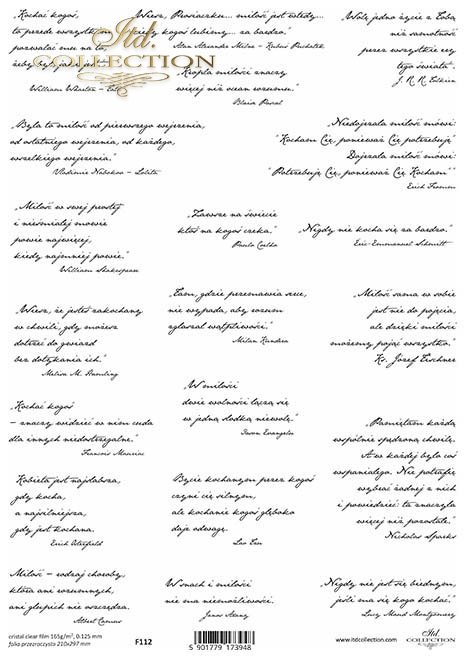 „Kochać kogoś,
to przede wszystkim
pozwalać mu na to,
żeby był, jaki jest."
William Wharton –
Itd.
COLLECTION
„Wiesz, Prosiaczku... miłość jest wtedy...
kiedy kogoś lubimy... za bardzo."
Alan Alexander Milne – Kubuś Puchatek
„Kropla miłości znaczy
więcej niż ocean rozumu."
Blaise Pascal
„Wolę jedno życie z Tobą
niż samotność
przez wszystkie ery
tego świata".
J. R. R. Tolkien
„Była to miłość od pierwszego wejrzenia,
od ostatniego wejrzenia, od każdego,
wszelkiego wejrzenia."
Vladimir Nabokov – Lolita
Niedojrzała miłość mówi:
"Kocham Cię, ponieważ Cię potrzebuję"
Dojrzała miłość mówi:
"Potrzebuję Cię, ponieważ Cię Kocham""
Erich Fromm
„Miłość w swej prostej
i nieśmiałej mowie
powie najwięcej,
kiedy najmniej powie."
William Shakespeare
„Zawsze na świecie
ktoś na kogoś czeka."
Paulo Coelho
„Nigdy nie kocha się za bardzo."
Eric-Emmanuel Schmitt
„Wiesz, że jesteś zakochany
w chwili, gdy możesz
dotrzeć do gwiazd
bez dotykania ich."
Melisa M.
„Tam, gdzie przemawia serce,
nie wypada, aby rozum
zgłaszał wątpliwości."
Milan Kundera
„Miłość sama w sobie
jest nie do pojęcia,
ale dzięki miłości
możemy pojąć wszystko."
Ks. Józef Tischner
„Kochać kogoś
– znaczy widzieć w nim cuda
dla innych niedostrzegalne."
Francois Mauriac
„W miłości
dwie wolności łączą się
w jedną słodką niewolę."
Jason Evangelou
„Pamiętam każdą
wspólnie spędzoną chwilę.
A w każdej było coś
wspaniałego. Nie potrafię
wybrać żadnej z nich
i powiedzieć: ta znaczyła
więcej niż pozostałe."
Nicholas Sparks
Kobieta jest najsłabsza,
gdy kocha,
a najsilniejsza,
gdy jest kochana.
Erich Osterfield
Bycie kochanym przez kogoś
czyni cię silnym,
ale kochanie kogoś głęboko
daje odwagę.
Lao Tzu
Miłość – rodzaj choroby,
która ani rozumnych,
ani głupich nie oszczędza.
Albert Camus
W snach i miłości
nie ma niemożliwości.
Janos Arany
Nigdy nie jest się biednym,
jeśli ma się kogo kochać.
Lucy Maud Montgomery
cristal clear film 165g/m², 0.125 mm
folia przezroczysta 210x297 mm
F112
5 901779 173948
www.itdcollection.com
Itd.
COLLECTION